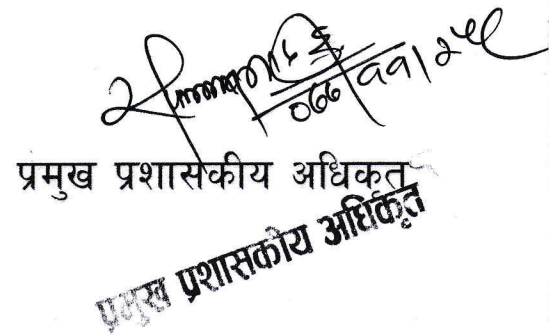 ०७७/११/२५
प्रमुख प्रशासकीय अधिकृत
प्रमुख प्रशासकीय अधिकृत